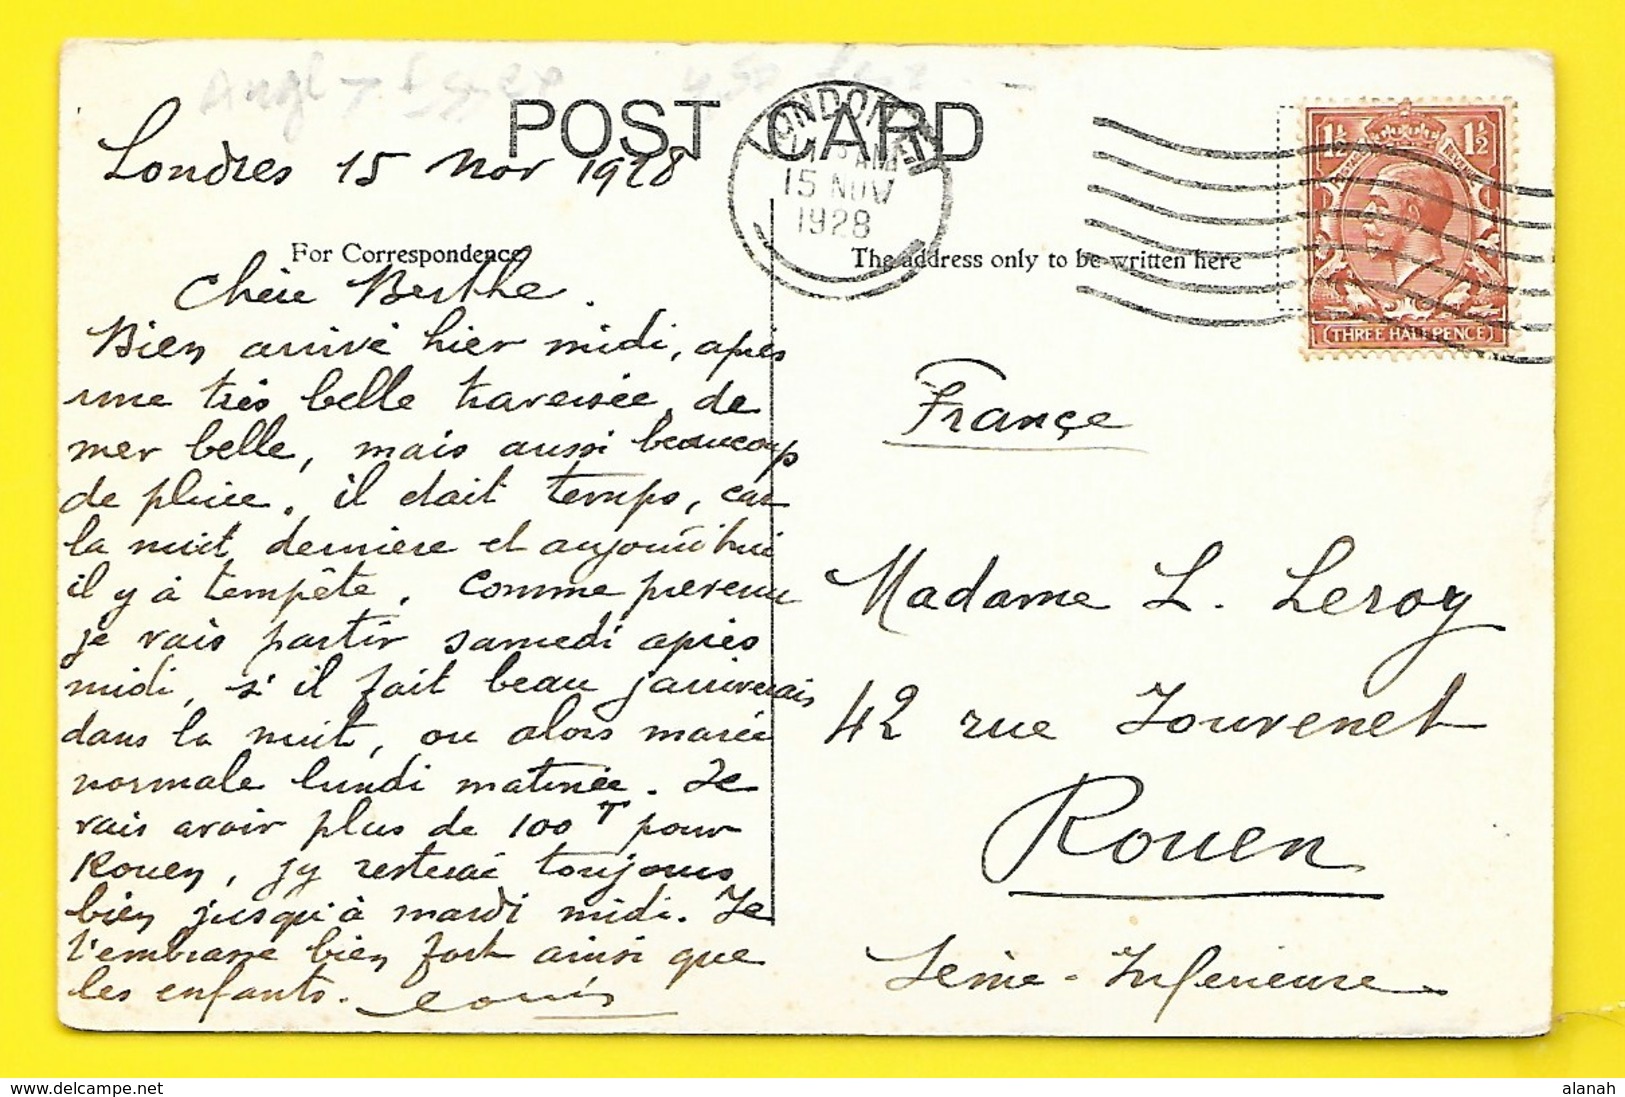 POST CARD
Londres 15 Nov 1928
LONDON
15 NOV
1928
1½ 1½
THREE HALFPENCE
For Correspondence
The address only to be written here
Chère Berthe.
Bien arrivé hier midi, après
une très belle traversée, de
mer belle, mais aussi beaucoup
de pluie. il était temps, car
la nuit dernière et aujourd'hui
il y à tempête. Comme prévenu
je vais partir samedi après
midi, s'il fait beau j'arriverais
dans la nuit, ou alors marée
normale lundi matinée. Je
vais avoir plus de 100 T pour
Rouen, j'y resterai toujours
bien jusqu'à mardi midi. Je
t'embrasse bien fort ainsi que
les enfants. Louis
France
Madame L. Leroy
42 rue Jouvenet
Rouen
Seine-Inferieure
alanah